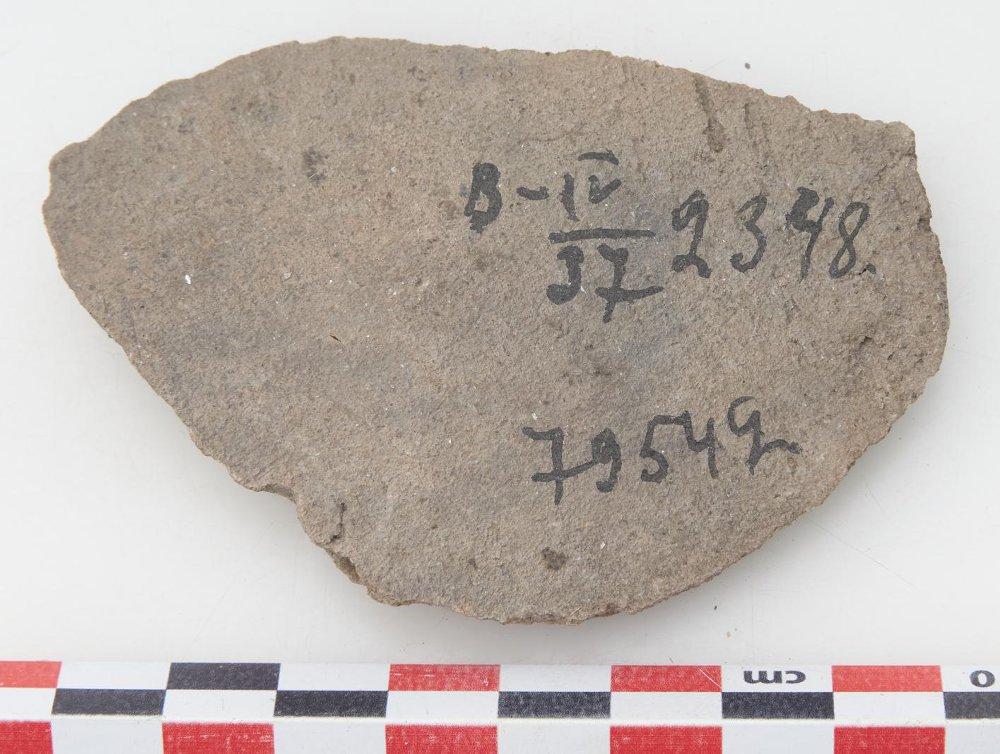 B-IV/37 2348.
79549
cm 0